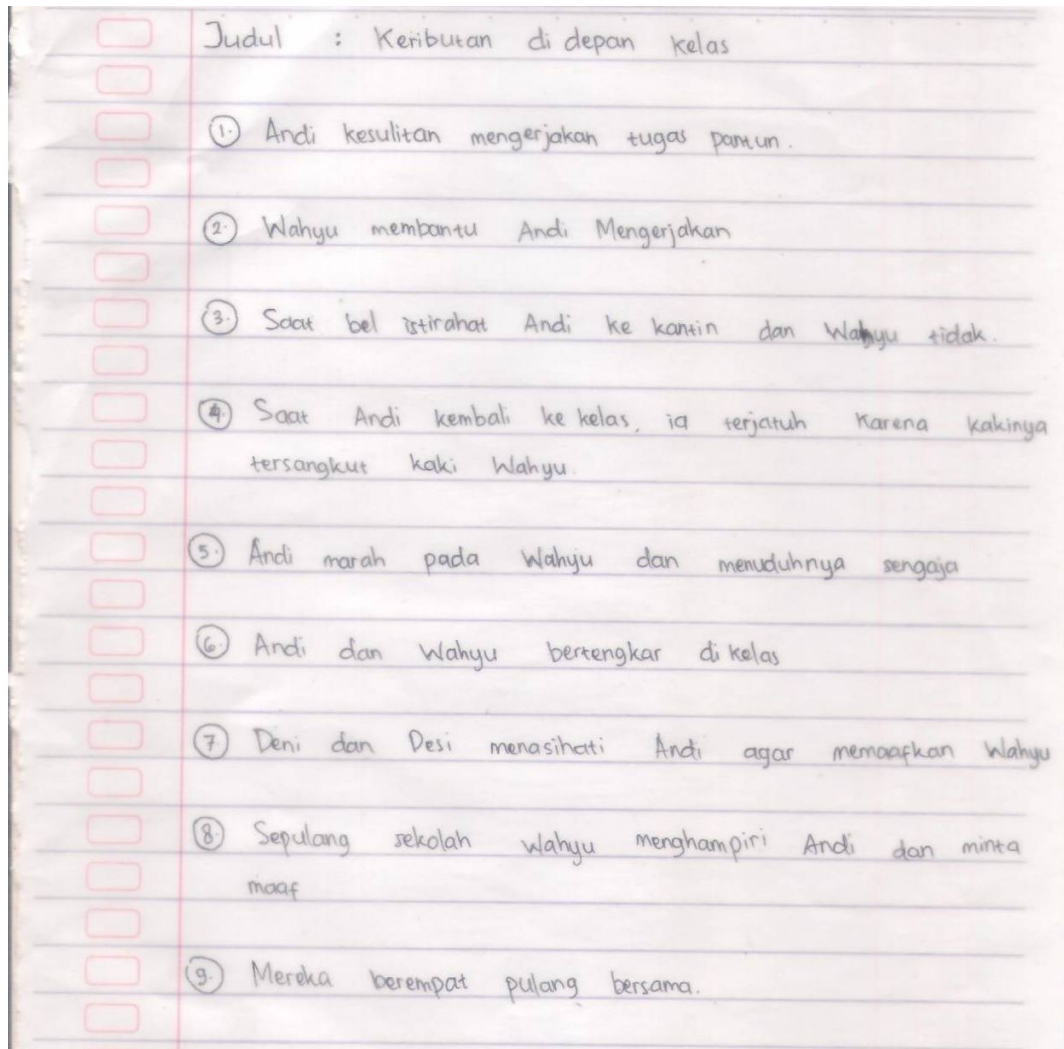 Judul : Keributan di depan kelas
1. Andi kesulitan mengerjakan tugas pantun.
2. Wahyu membantu Andi Mengerjakan
3. Saat bel istirahat Andi ke kantin dan Wahyu tidak.
4. Saat Andi kembali ke kelas, ia terjatuh karena kakinya
tersangkut kaki Wahyu.
5. Andi marah pada Wahyu dan menuduhnya sengaja
6. Andi dan Wahyu bertengkar di kelas
7 Deni dan Desi menasihati Andi agar memaafkan Wahyu
8. Sepulang sekolah Wahyu menghampiri Andi dan minta
maaf
9. Mereka berempat pulang bersama.